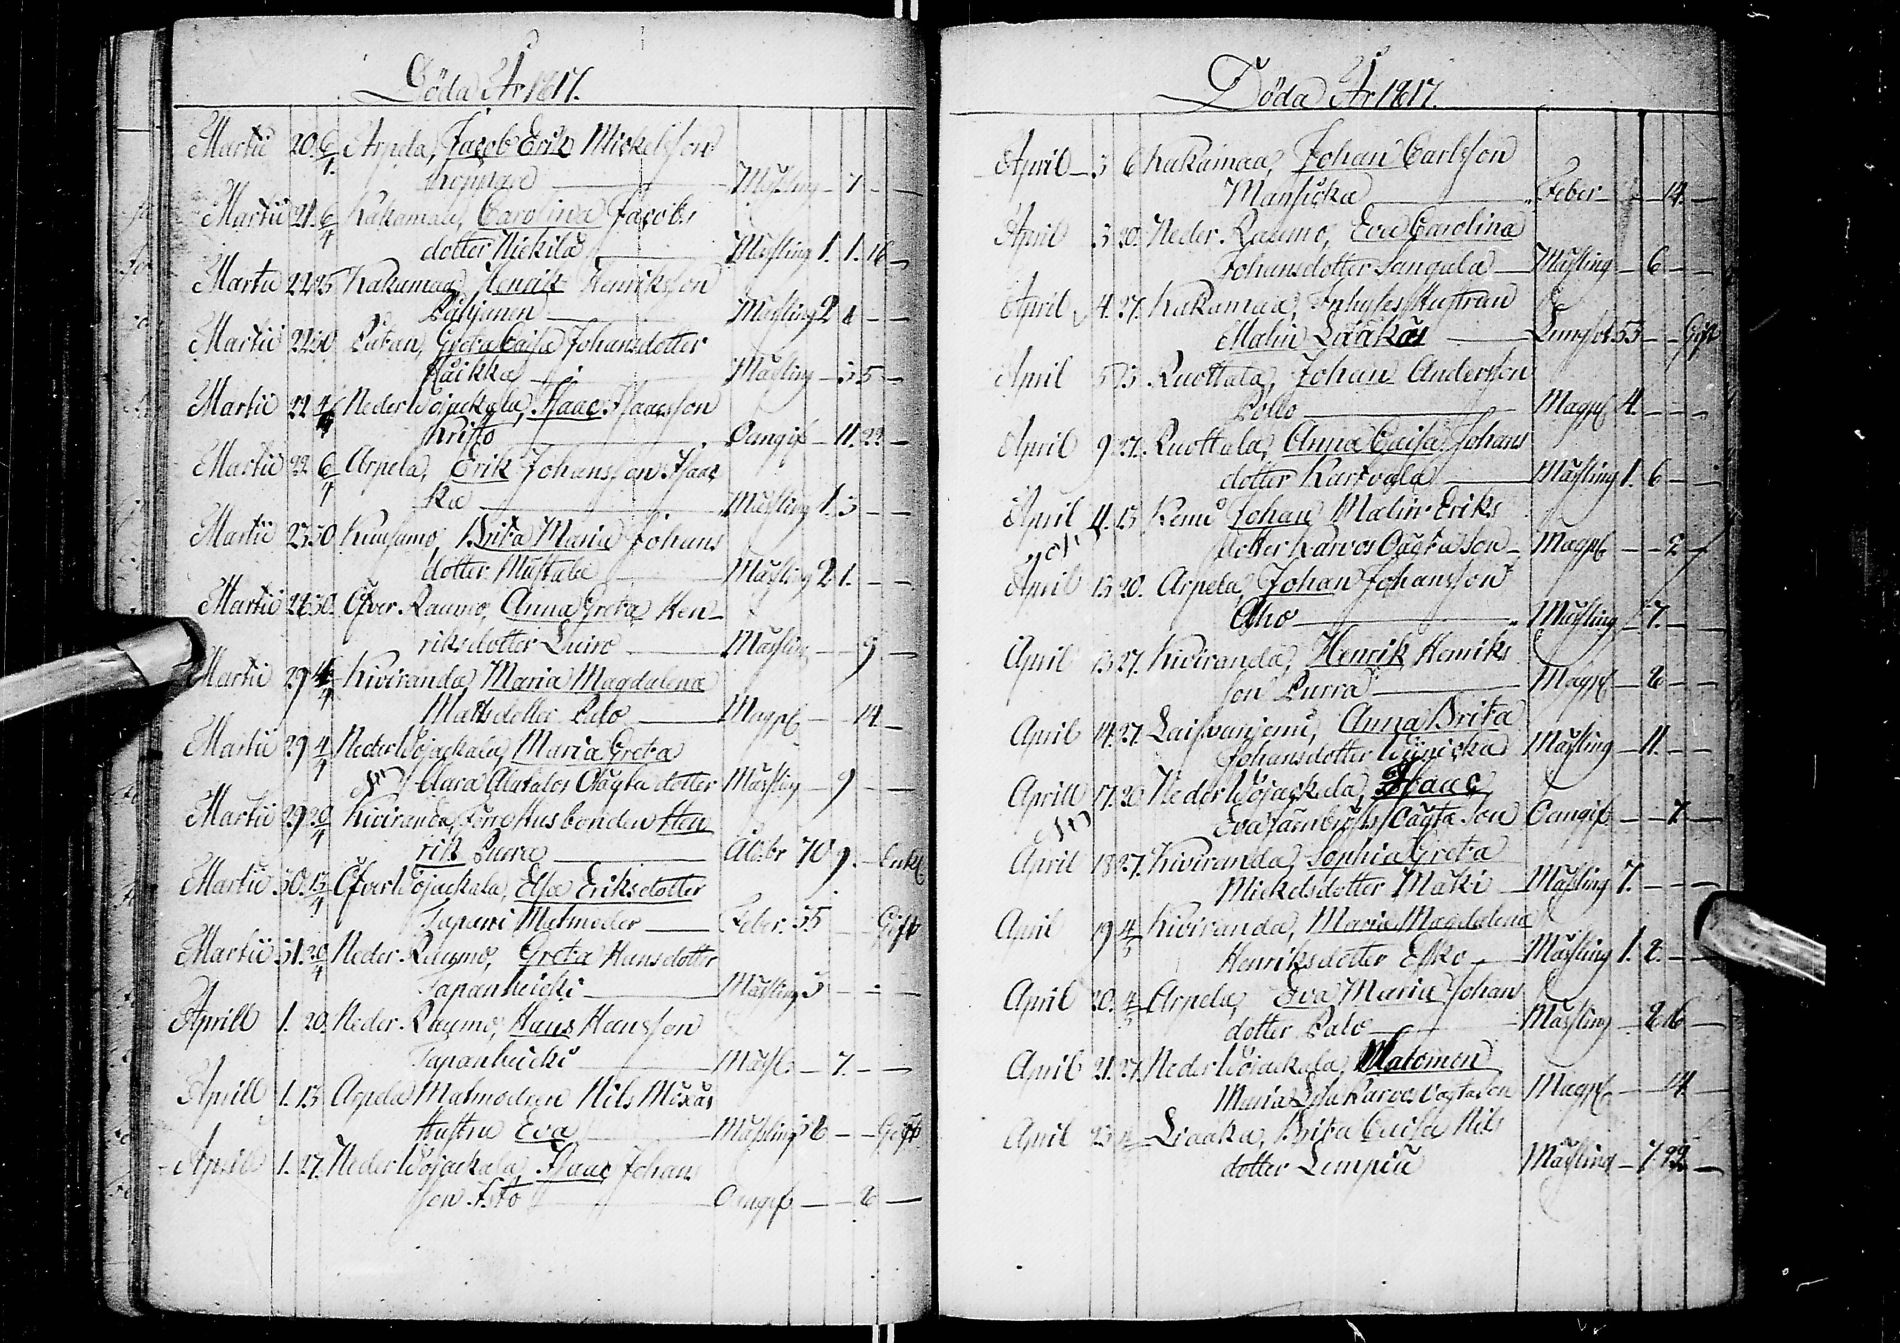 Döda År 1817.
Martii 20. 6/4 Arpela, Jacob Erik Mickelsson
Mässling - 7 - -
Martii 21. 6/4 Kakamaa, Carolina Jacobs
dotter Niskila Mässling 1. 1. 16 -
Martii 22 25 Kakamaa, Henrik Henriksson
Mässling 2 4 - -
Martii 22 30 Greta Caisa Johansdotter
Raikka Mässling - 3 5 -
Martii 22 4/4 Neder Wojackala, Isaac Isaacsson
Kritto Oangif. - 11. 22. -
Martii 22 6/4 Arpela, Erik Johansson Isaac
ka Mässling 1. 3 - -
Martii 23 30 Kuusamo, Brita Maria Johans
dotter Mustala Mässling 2 1. - -
Martii 26 30. Öfver Raumo, Anna Greta Hen-
riksdotter Luiro Mässling - - 9 -
Martii 29 4/4 Kiviranda, Maria Magdalena
Mattsdotter Palo Magpl. - - 14. -
Martii 29 4/4 Neder Wojackala, Maria Greta
Clara Alatalos Oägta dotter Mässling - 9 - -
Martii 29 20/4 Kiviranda, Förre Husbonden Hen
rik Purra Åldbr. 70 9. - Enkl.
Martii 30. 13/4 Öfver Wojackala, Elsa Eriksdotter
Tapani Matmoder Feber. 55 - Gift
Martii 31. 20/4 Neder Raumo, Greta Hansdotter
Tapanheicki Mässling 3 - - -
Aprill 1. 20. Neder Raumo, Hans Hansson
Tapanheicki Mässl. - 7. - -
Aprill 1. 13 Arpela Matmodren Nils
Hustru Eva Mässling 36 - - Gift
April 1. 27. Neder Wojackala, Isaac Johans
son Isto Oangif. - - 6 -
Döda År 1817.
April 3 6 Kakamaa, Johan Carlsson
Mansicka Feber - - 14. -
April 3 20. Neder Raumo, Eva Carolina
Johansdotter Sangala Mässling - 6 - -
April 4. 27. Kakamaa, Inhyses Hustrun
Malin Lungsot 55 - - Gift
April 5 13 Ruottala, Johan Andersson
Pollo Magpl. 4. - - -
April 9 27. Ruottala, Anna Caisa Johans
dotter Mässling 1. 6 - -
April 11. 13 Kemi Johan Malin Eriks
dotter Karvos Oägta son Magpl. - - 2 -
April 13 20. Arpela, Johan Johansson
Aho Mässling - 7. - -
April 13 27. Kiviranda, Henrik Henriks
son Purra Magpl. - 8 - -
April 14. 27. Laivaniemi, Anna Brita
Johansdotter Mässling - 11. - -
Aprill 17. 20 Neder Wojackala, Isaac
Eva Oägta Son Oangif. - - 7. -
April 18 27. Kiviranda, Sophia Greta
Mickelsdotter Mäki Mässling 7. - - -
April 19 4/5 Kiviranda, Maria Magdalena
Henriksdotter Esko Mässling 1. 8. - -
April 20. 4/5 Arpela, Eva Maria Johans
dotter Palo Mässling - 8 16 -
April 21. 27. Neder Wojackala, Salomon
Maria Lisa Karvos Oägta son Magpl. - - 14. -
April 23 4 Liaaka, Brita Caisa Nils
dotter Lempiä Mässling - 7. 22. -